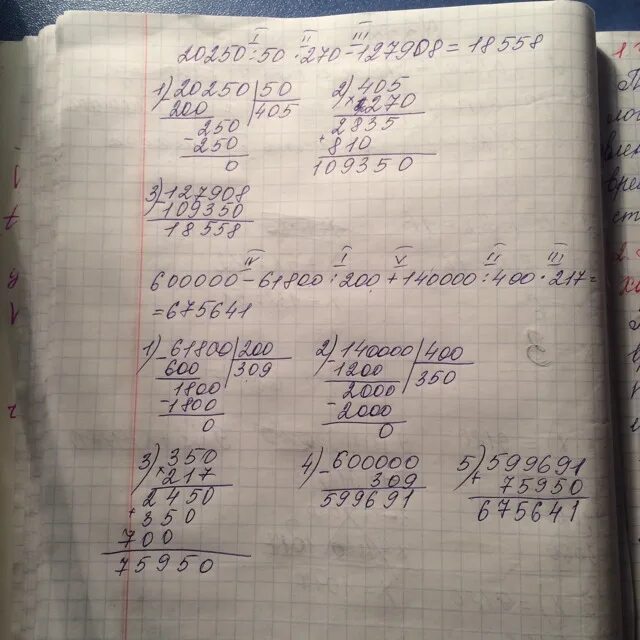 I II III
20250:50·270-127908=18558
1) 20250 | 50
200 | 405
250
- 250
0
2) 405
× 270
2835
+ 810
109350
3) 127908
- 109350
18558
IV I V II III
600000-61800:200+140000:400·217=
=675641
1) - 61800 | 200
600 | 309
1800
- 1800
0
2) - 140000 | 400
1200 | 350
2000
- 2000
0
3) 350
× 217
2450
+ 350
700
75950
4) - 600000
309
599691
5) 599691
+ 75950
675641